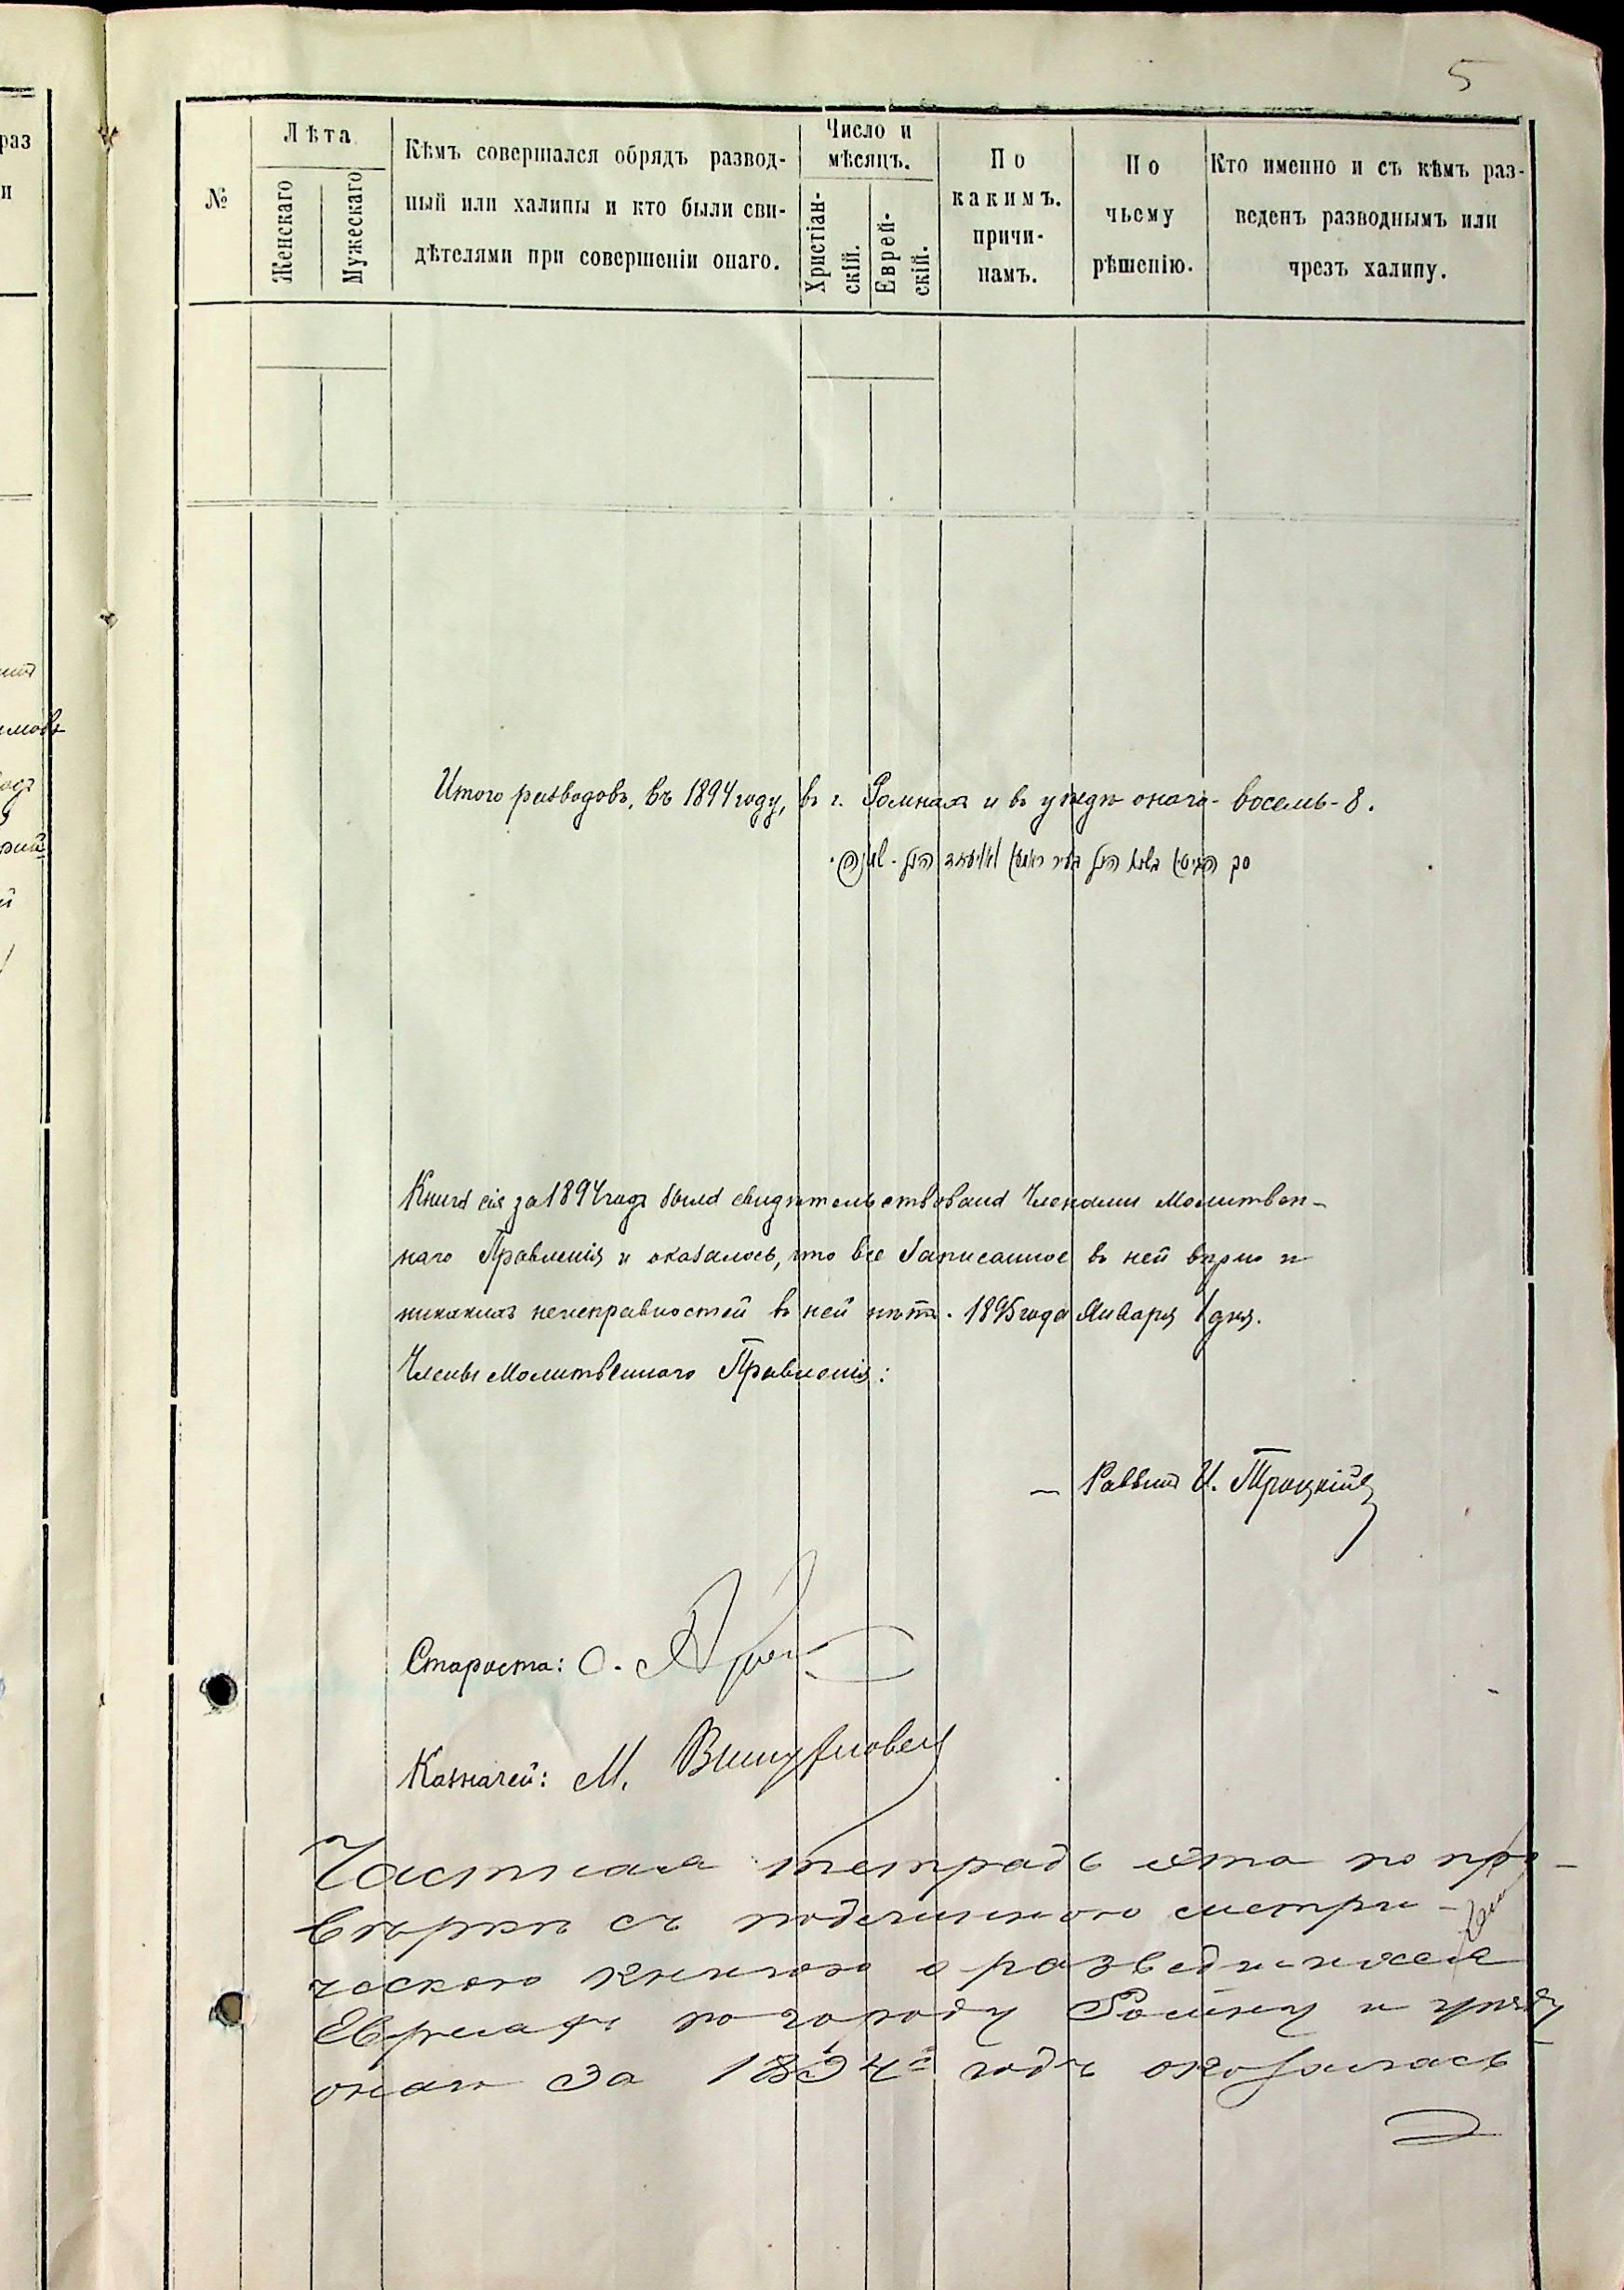 5
№
Лѣта
Женскаго
Мужескаго
Кѣмъ совершался обрядъ развод-
ный или халицы и кто были сви-
дѣтелями при совершеніи онаго.
Число и
мѣсяцъ.
Христіан-
скій.
Еврей-
скій.
По
какимъ
причи-
намъ.
По
чьему
рѣшенію.
Кто именно и съ кѣмъ раз-
веденъ разводнымъ или
чрезъ халицу.
раз
и
Итого разводовъ, въ 1894 году, въ г. Ромнахъ и въ уѣздѣ онаго - восемь - 8.
סך
Книга сія за 1894 годъ была свидѣтельствована Членами Молитвен-
наго Правленія и оказалось, что все записанное въ ней вѣрно и
никакихъ неисправностей въ ней нѣтъ. 1895 года Января 1 дня.
Члены Молитвеннаго Правленія:
— Раввинъ И. Троцкій
Староста: О.
Казначей: М.
Частная тетрадь эта по про-
вѣркѣ съ подлинною метри-
ческою книгою о разведшихся
Евреяхъ по городу Ромну и уѣзду
онаго за 1894й годъ оказалась